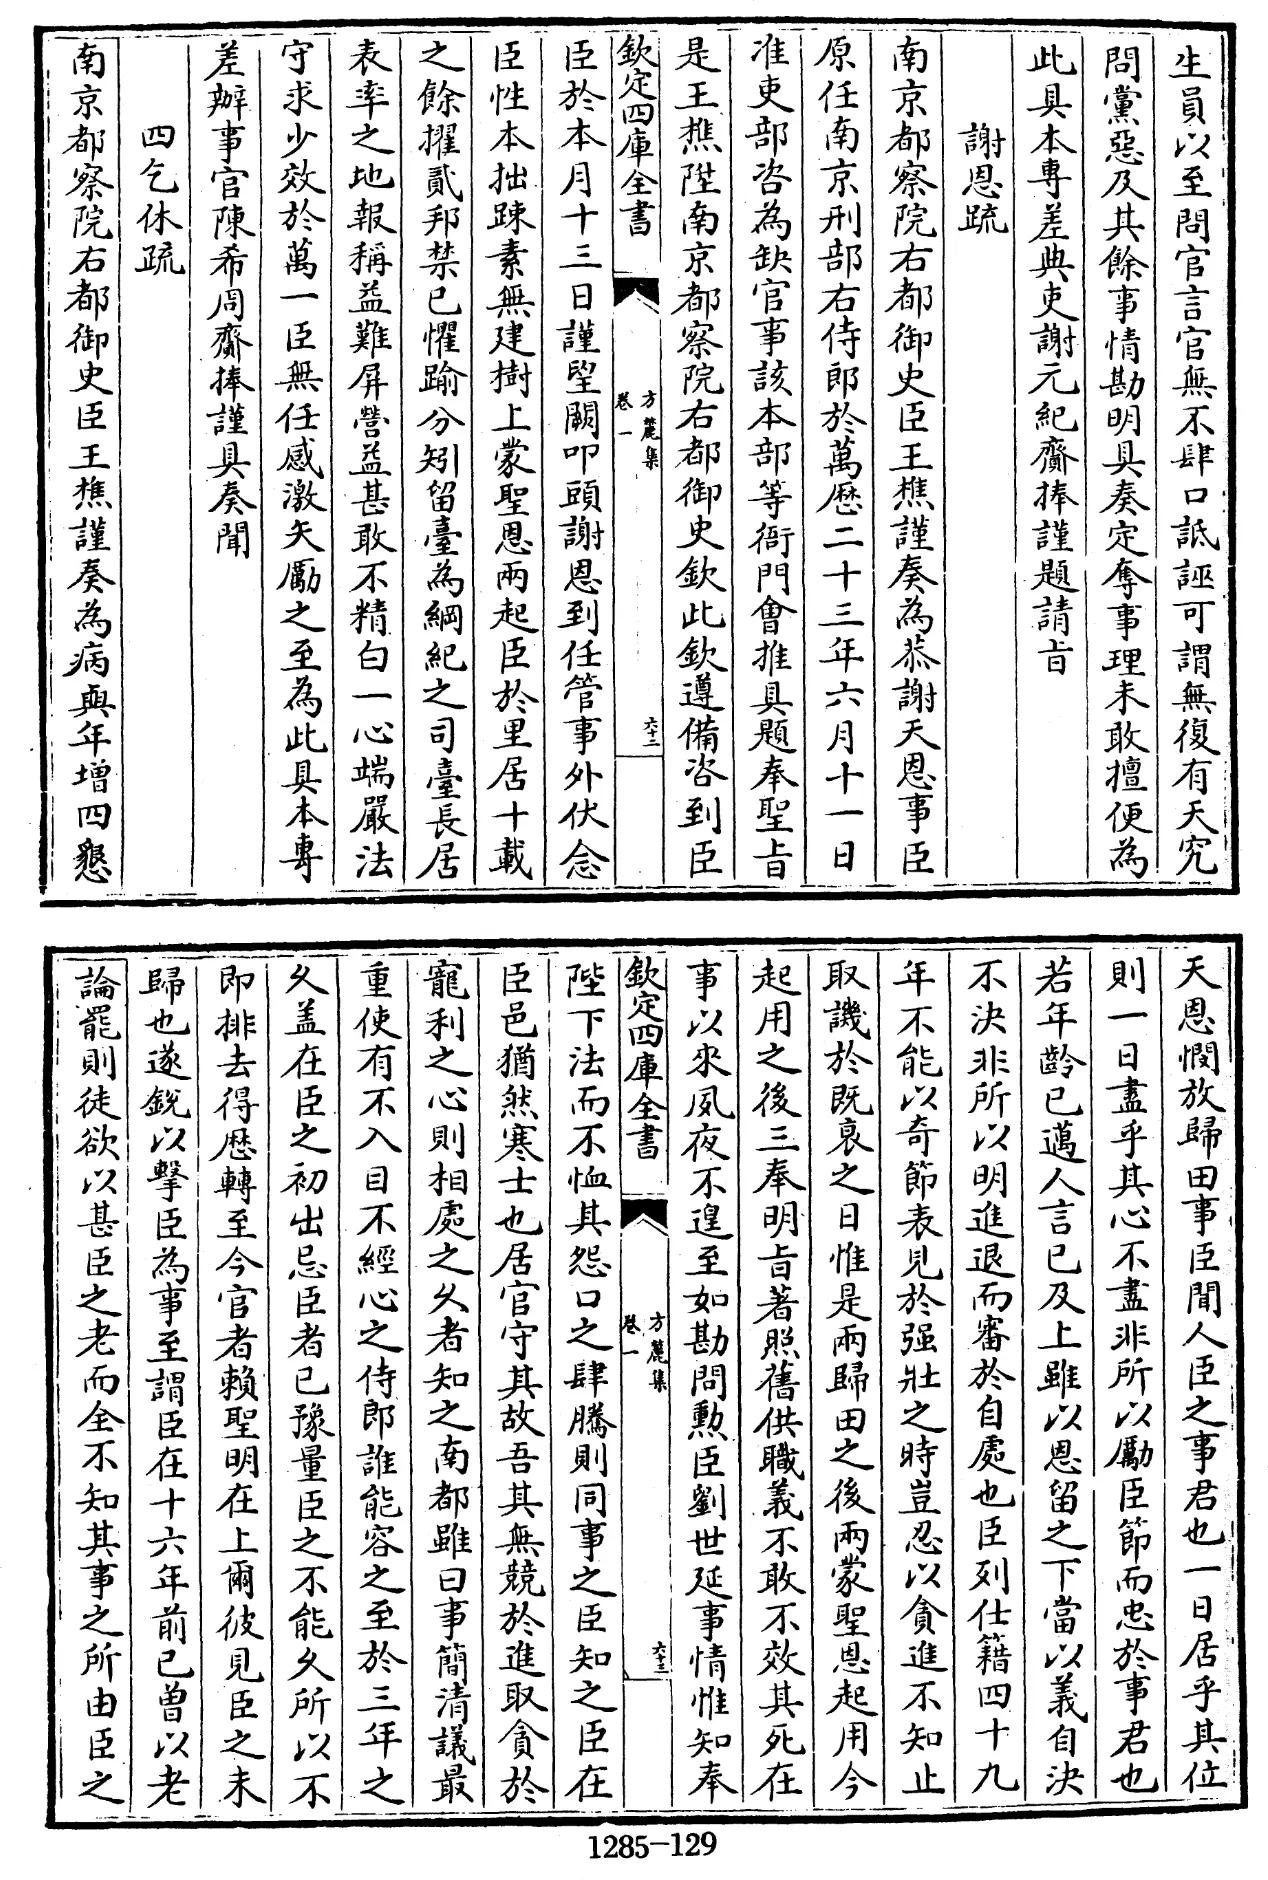 生員以至問官言官無不肆口詆誣可謂無復有天究
問黨惡及其餘事情勘明具奏定奪事理未敢擅便為
此具本專差典吏謝元紀齎捧謹題請旨
謝恩疏
南京都察院右都御史臣王樵謹奏為恭謝天恩事臣
原任南京刑部右侍郎於萬歷二十三年六月十一日
准吏部咨為缺官事該本部等衙門會推具題奉聖旨
是王樵陞南京都察院右都御史欽此欽遵備咨到臣
欽定四庫全書
方麓集
卷一
六十二
臣於本月十三日謹望闕叩頭謝恩到任管事外伏念
臣性本拙踈素無建樹上蒙聖恩兩起臣於里居十載
之餘擢貳邦禁已懼踰分矧留臺為綱紀之司臺長居
表率之地報稱益難屏營益甚敢不精白一心端嚴法
守求少效於萬一臣無任感激矢勵之至為此具本專
差辦事官陳希周齎捧謹具奏聞
四乞休疏
南京都察院右都御史臣王樵謹奏為病與年增四懇
天恩憫放歸田事臣聞人臣之事君也一日居乎其位
則一日盡乎其心不盡非所以勵臣節而忠於事君也
若年齡已邁人言已及上雖以恩留之下當以義自決
不決非所以明進退而審於自處也臣列仕籍四十九
年不能以奇節表見於强壯之時豈忍以貪進不知止
取譏於既衰之日惟是兩歸田之後兩蒙聖恩起用今
起用之後三奉明旨著照舊供職義不敢不效其死在
事以來夙夜不遑至如勘問勲臣劉世延事情惟知奉
欽定四庫全書
方麓集
卷一
六十三
陛下法而不恤其怨口之肆騰則同事之臣知之臣在
臣邑猶然寒士也居官守其故吾其無競於進取貪於
寵利之心則相處之久者知之南都雖曰事簡清議最
重使有不入目不經心之侍郎誰能容之至於三年之
久盖在臣之初出忌臣者已豫量臣之不能久所以不
即排去得歷轉至今官者賴聖明在上爾彼見臣之未
歸也遂鋭以擊臣為事至謂臣在十六年前已曾以老
論罷則徒欲以甚臣之老而全不知其事之所由臣之
1285-129